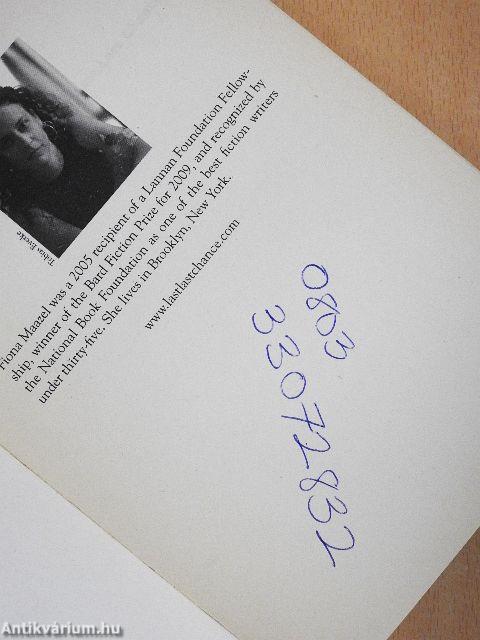 Tobias Everke
Fiona Maazel was a 2005 recipient of a Lannan Foundation Fellow-
ship, winner of the Bard Fiction Prize for 2009, and recognized by
the National Book Foundation as one of the best fiction writers
under thirty-five. She lives in Brooklyn, New York.
www.lastlastchance.com
0863
33072832
Antikvárium.hu